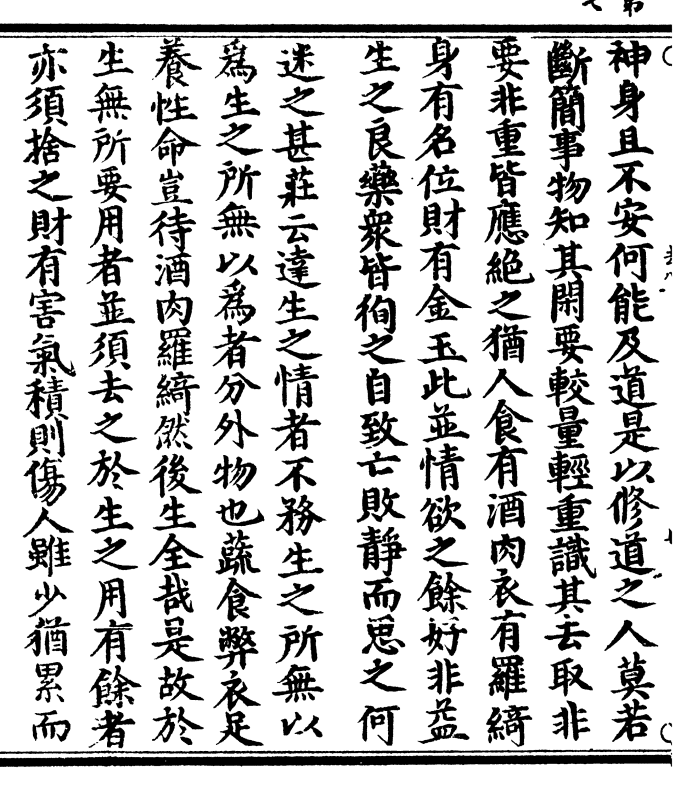 神身且不安何能及道是以修道之人莫若
斷簡事物知其閑要較量輕重識其去取非
要非重皆應絕之猶人食有酒肉衣有羅綺
身有名位財有金玉此並情欲之餘好非益
生之良藥衆皆徇之自致亡敗靜而思之何
迷之甚莊云達生之情者不務生之所無以
爲生之所無以爲者分外物也蔬食弊衣足
養性命豈待酒肉羅綺然後生全哉是故於
生無所要用者並須去之於生之用有餘者
亦須捨之財有害氣積則傷人雖少猶累而